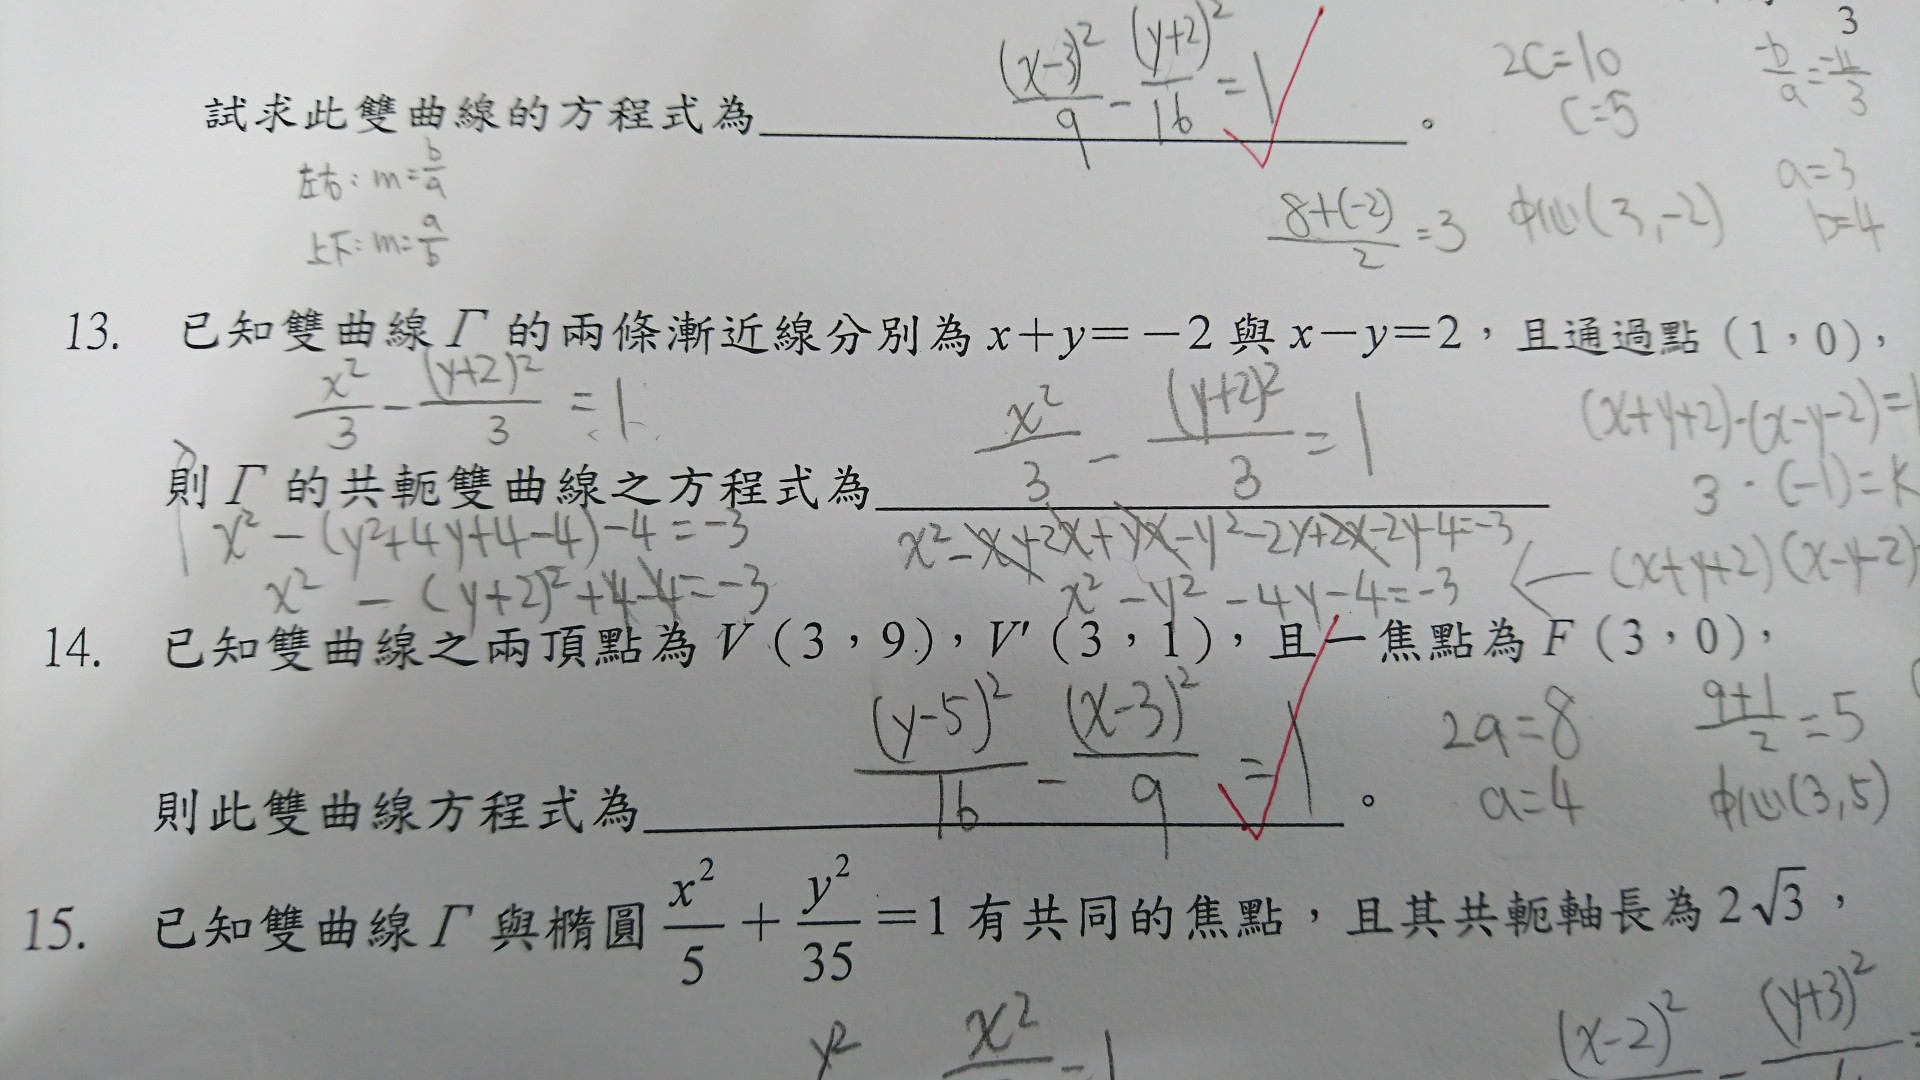 3
(x-3)²/9 - (y+2)²/16 = 1
2c=10
c=5
試求此雙曲線的方程式為 。
左右: m=b/a
上下: m=a/b
(8+(-2))/2 =3
中心(3,-2)
a=3
b=4
13. 已知雙曲線Γ的兩條漸近線分別為x+y=-2與x-y=2，且通過點(1，0)，
x²/3 - (y+2)²/3 = 1
x²/3 - (y+2)²/3 = 1
(x+y+2)·(x-y-2)=
3·(-1)=k
則Γ的共軛雙曲線之方程式為
x²-(y²+4y+4-4)-4=-3
x²-xy-2x+yx-y²-2y+2x-2y-4=-3
(x+y+2)(x-y-2)
x² - (y+2)²+4-4=-3
x²-y²-4y-4=-3
14. 已知雙曲線之兩頂點為V(3，9)，V'(3，1)，且一焦點為F(3，0)，
(y-5)²/16 - (x-3)²/9 = 1
2a=8
a=4
(9+1)/2=5
中心(3,5)
則此雙曲線方程式為 。
15. 已知雙曲線Γ與橢圓x²/5+y²/35=1有共同的焦點，且其共軛軸長為2√3，
y²
x²
(x-2)²
(y+3)²